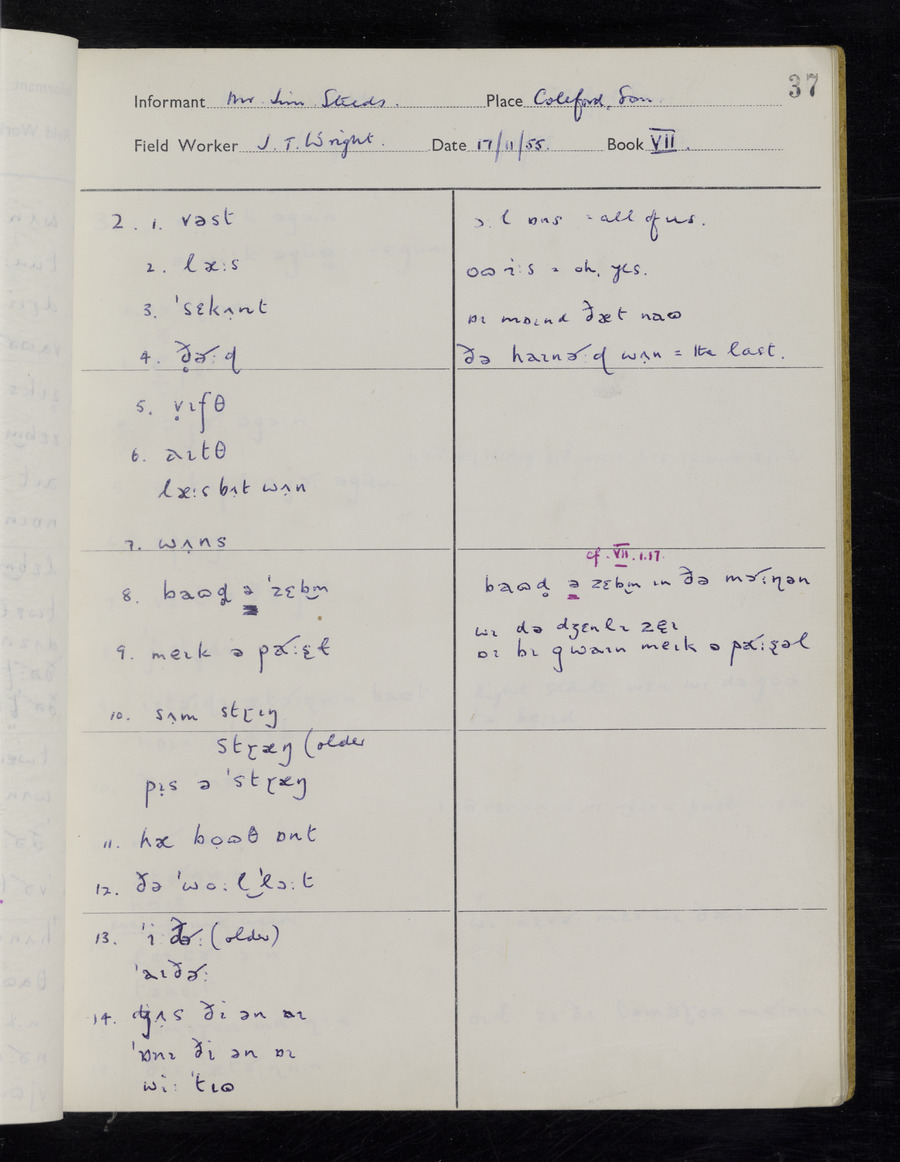 37
Informant Mr. Jim Steeds. Place Coleford, Som.
Field Worker J. T. Wright. Date 17/11/55. Book VII.
2. 1. vəst
2. læ:s
3. ˈsɛkʌ̣nt
4. ð̣ə˞:d
5. ṿɪfθ
6. aɪtθ
læ:s bɪt wʌ̣n
7. wʌ̣ns
8. baɷd̥ ə ˈzɛbm̩
9. meɪk ə pɑ˞:sɫ̣
10. sʌ̣m stɽɪŋ
stɽæŋ (older
pɪ̣s ə ˈstɽæŋ
11. hæ bọɷθ ɒnt
12. ðə ˈwo:l ˈlɔ:t
13. ˈi ðə˞: (older)
ˈaɪðə˞:
14. dʒʌ̣s ði ən ɒɪ
ˈɒnɪ ði ən ɒɪ
wi: ˈtɪɷ
ɔ.l ɒns = all of us.
oɷ i:s = oh, yes.
ɒɪ mɒɪnd ðæt naɷ
ðə haɪnə˞:d wʌ̣n = the last.
cf. VII.1.17.
baɷd̥ ə zɛbm̩ ɪn ðə mɔ˞:nən
wɪ də dʒɛnlɪ zɛɪ
ɒɪ bɪ gwaɪn meɪk ə pɑ˞:sə̣l